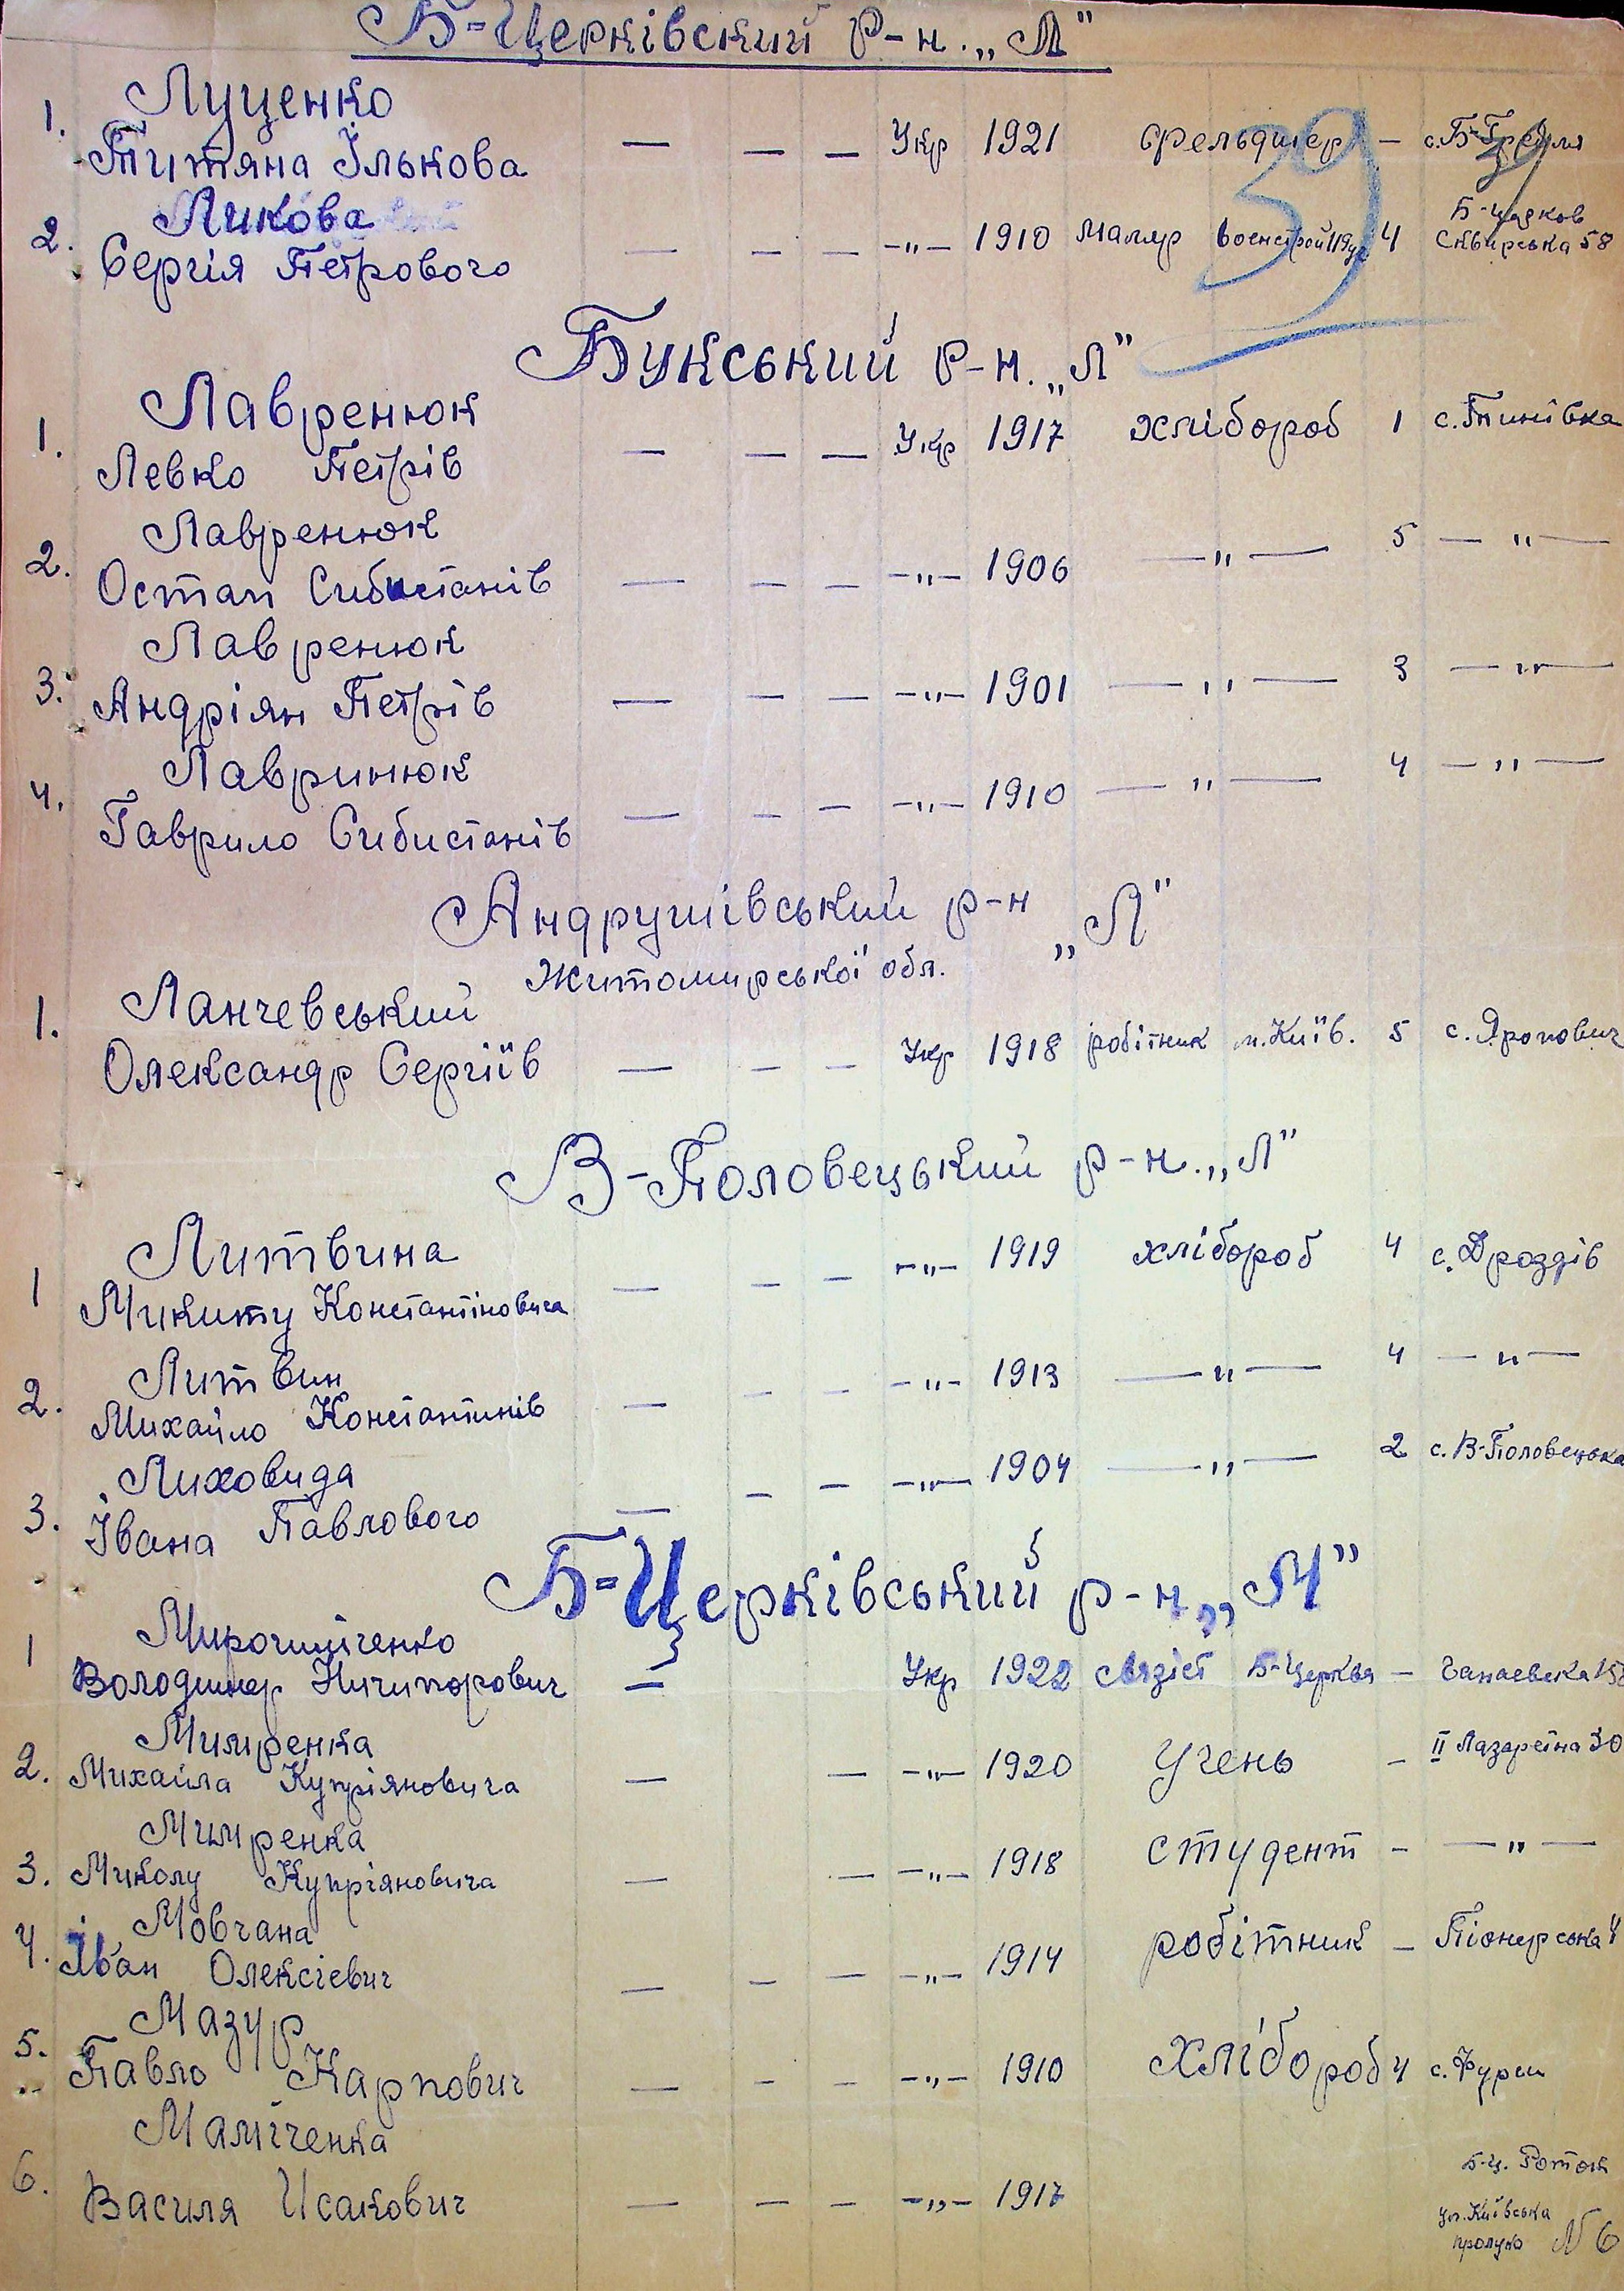 Б-Церківский р-н. „Л"
39
Луценко
1. Титяна Ількова — — — Укр 1921 фельдшер — с. Б-Гребля
Ликова
2. Сергія Петрового — — — -"- 1910 Маляр 4 Б-церков
Сквирська 58
Букський р-н. „Л"
Лавренюк
1. Левко Петрів — — — Укр 1917 хлібороб 1 с. Тинівка
Лавренюк
2. Остап Сибистанів — — — -"- 1906 —"— 5 —"—
Лавренюк
3. Андріян Петрів — — — -"- 1901 —"— 3 —"—
Лавринюк
4. Гаврило Сибистанів — — — -"- 1910 —"— 4 —"—
Андрушівський р-н „Л"
Житомирської обл.
Ланчевський
1. Олександр Сергіїв — — — Укр 1918 робітник м. Київ. 5 с. Яропович
В-Половецький р-н. „Л"
Литвина
1 Микиту Константіновича — — — -"- 1919 хлібороб 4 с. Дроздів
Литвин
2. Михайло Константинів — — — -"- 1913 —"— 4 —"—
Лиховида
3. Івана Павлового — — — -"- 1904 —"— 2 с. В-Половецька
Б-Церківський р-н „М"
Мирошніченко
1 Володимер Ничипорович — Укр 1922 связіст Б-Церква — Чапаевска
Мимренка
2. Михайла Купріяновича — — -"- 1920 Учень — ІІ Лазаретна 30
Мимренка
3. Миколу Купріяновича — — -"- 1918 студент - —"—
Мовчана
4. Іван Олексієвич — — — -"- 1914 робітник — Піонерська 4
Мазур
5. Павло Карпович — — — -"- 1910 Хлібороб 4 с. Фурси
Маміченка
6. Василя Исакович — — — -"- 1917 Б-Ц. Роток
ул. Київська
№ 6